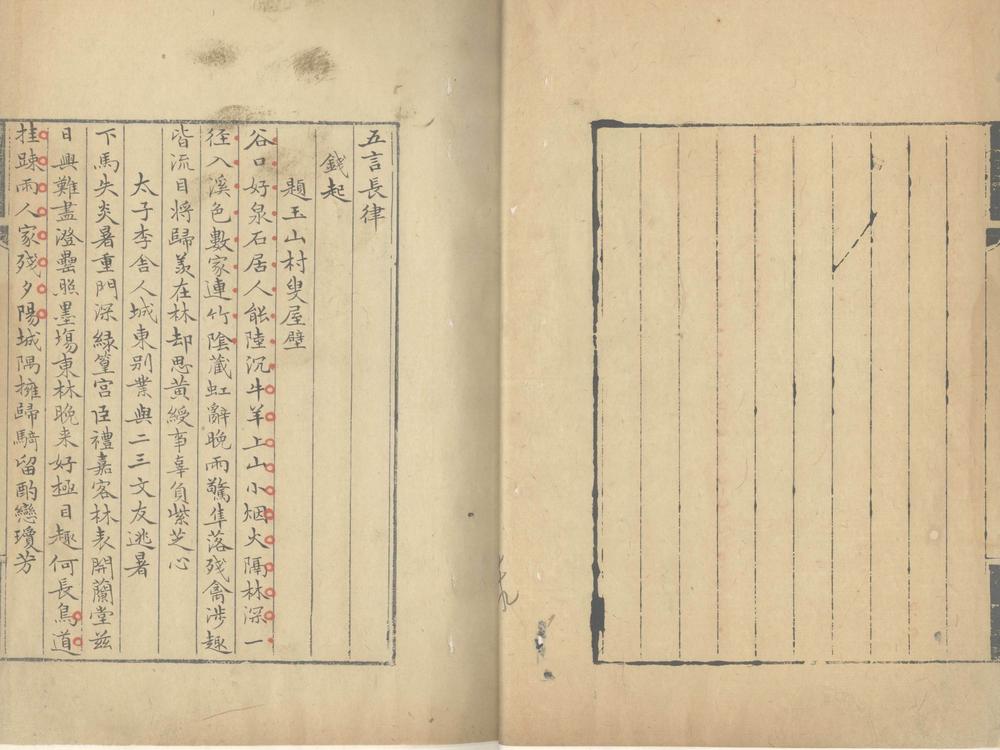 五言長律
錢起
題玉山村叟屋壁
谷口好泉石居人能陸沉牛羊上山小烟火隔林深一
徑入溪色數家連竹陰藏虹辭晚雨驚隼落殘禽涉趣
皆流目將歸羨在林却思黃綬事辜負紫芝心
太子李舍人城東别業與二三文友逃暑
下馬失炎暑重門深綠篁宮臣禮嘉客林表開蘭堂兹
日興難盡澄罍照墨場東林晚来好極目趣何長鳥道
挂疎雨人家殘夕陽城隅擁歸騎留酌戀瓊芳